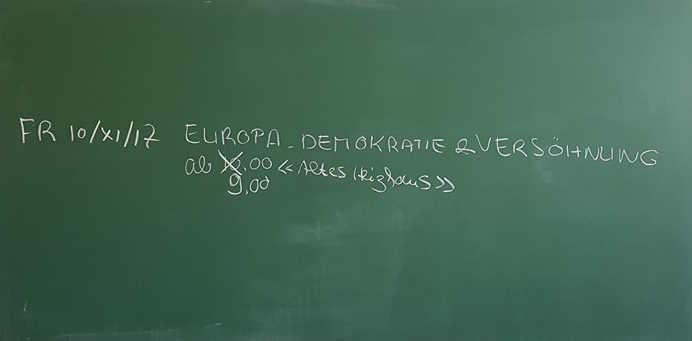 FR 10/XI/17 EUROPA - DEMOKRATIE & VERSÖHNUNG
ab .00 << Altes Heizhaus >>
9.00